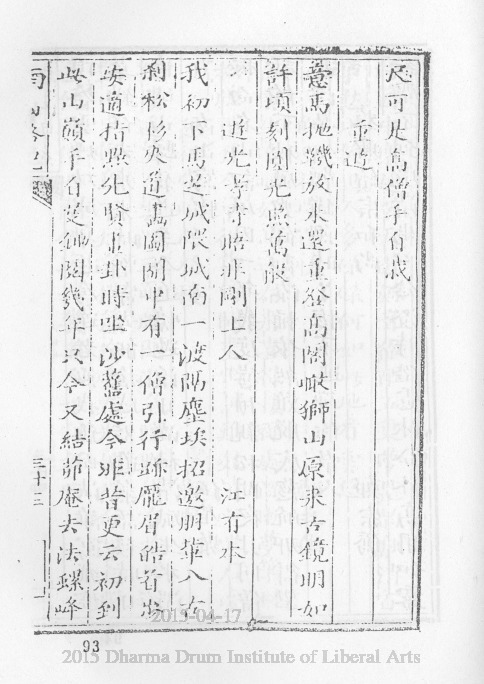 尺可是高僧手自裁
重遊
意馬拋韉放未還重登高閣瞰獅山原來古鏡明如
許頃刻開光照萬般
遊光孝寺贈非剛上人 江有本
我初下馬芝城隈城南一渡隔塵埃招邀朋輩入古
剎松杉夾道畫圖開中有一僧引行跡龐眉皓首
安適指點先賢畫卦時坐沙舊處今非昔更云初到
此山巔手自楚鋤閱幾年只今又結茆庵去法螺峰
三十三
93
2015-04-17
2015 Dharma Drum Institute of Liberal Arts